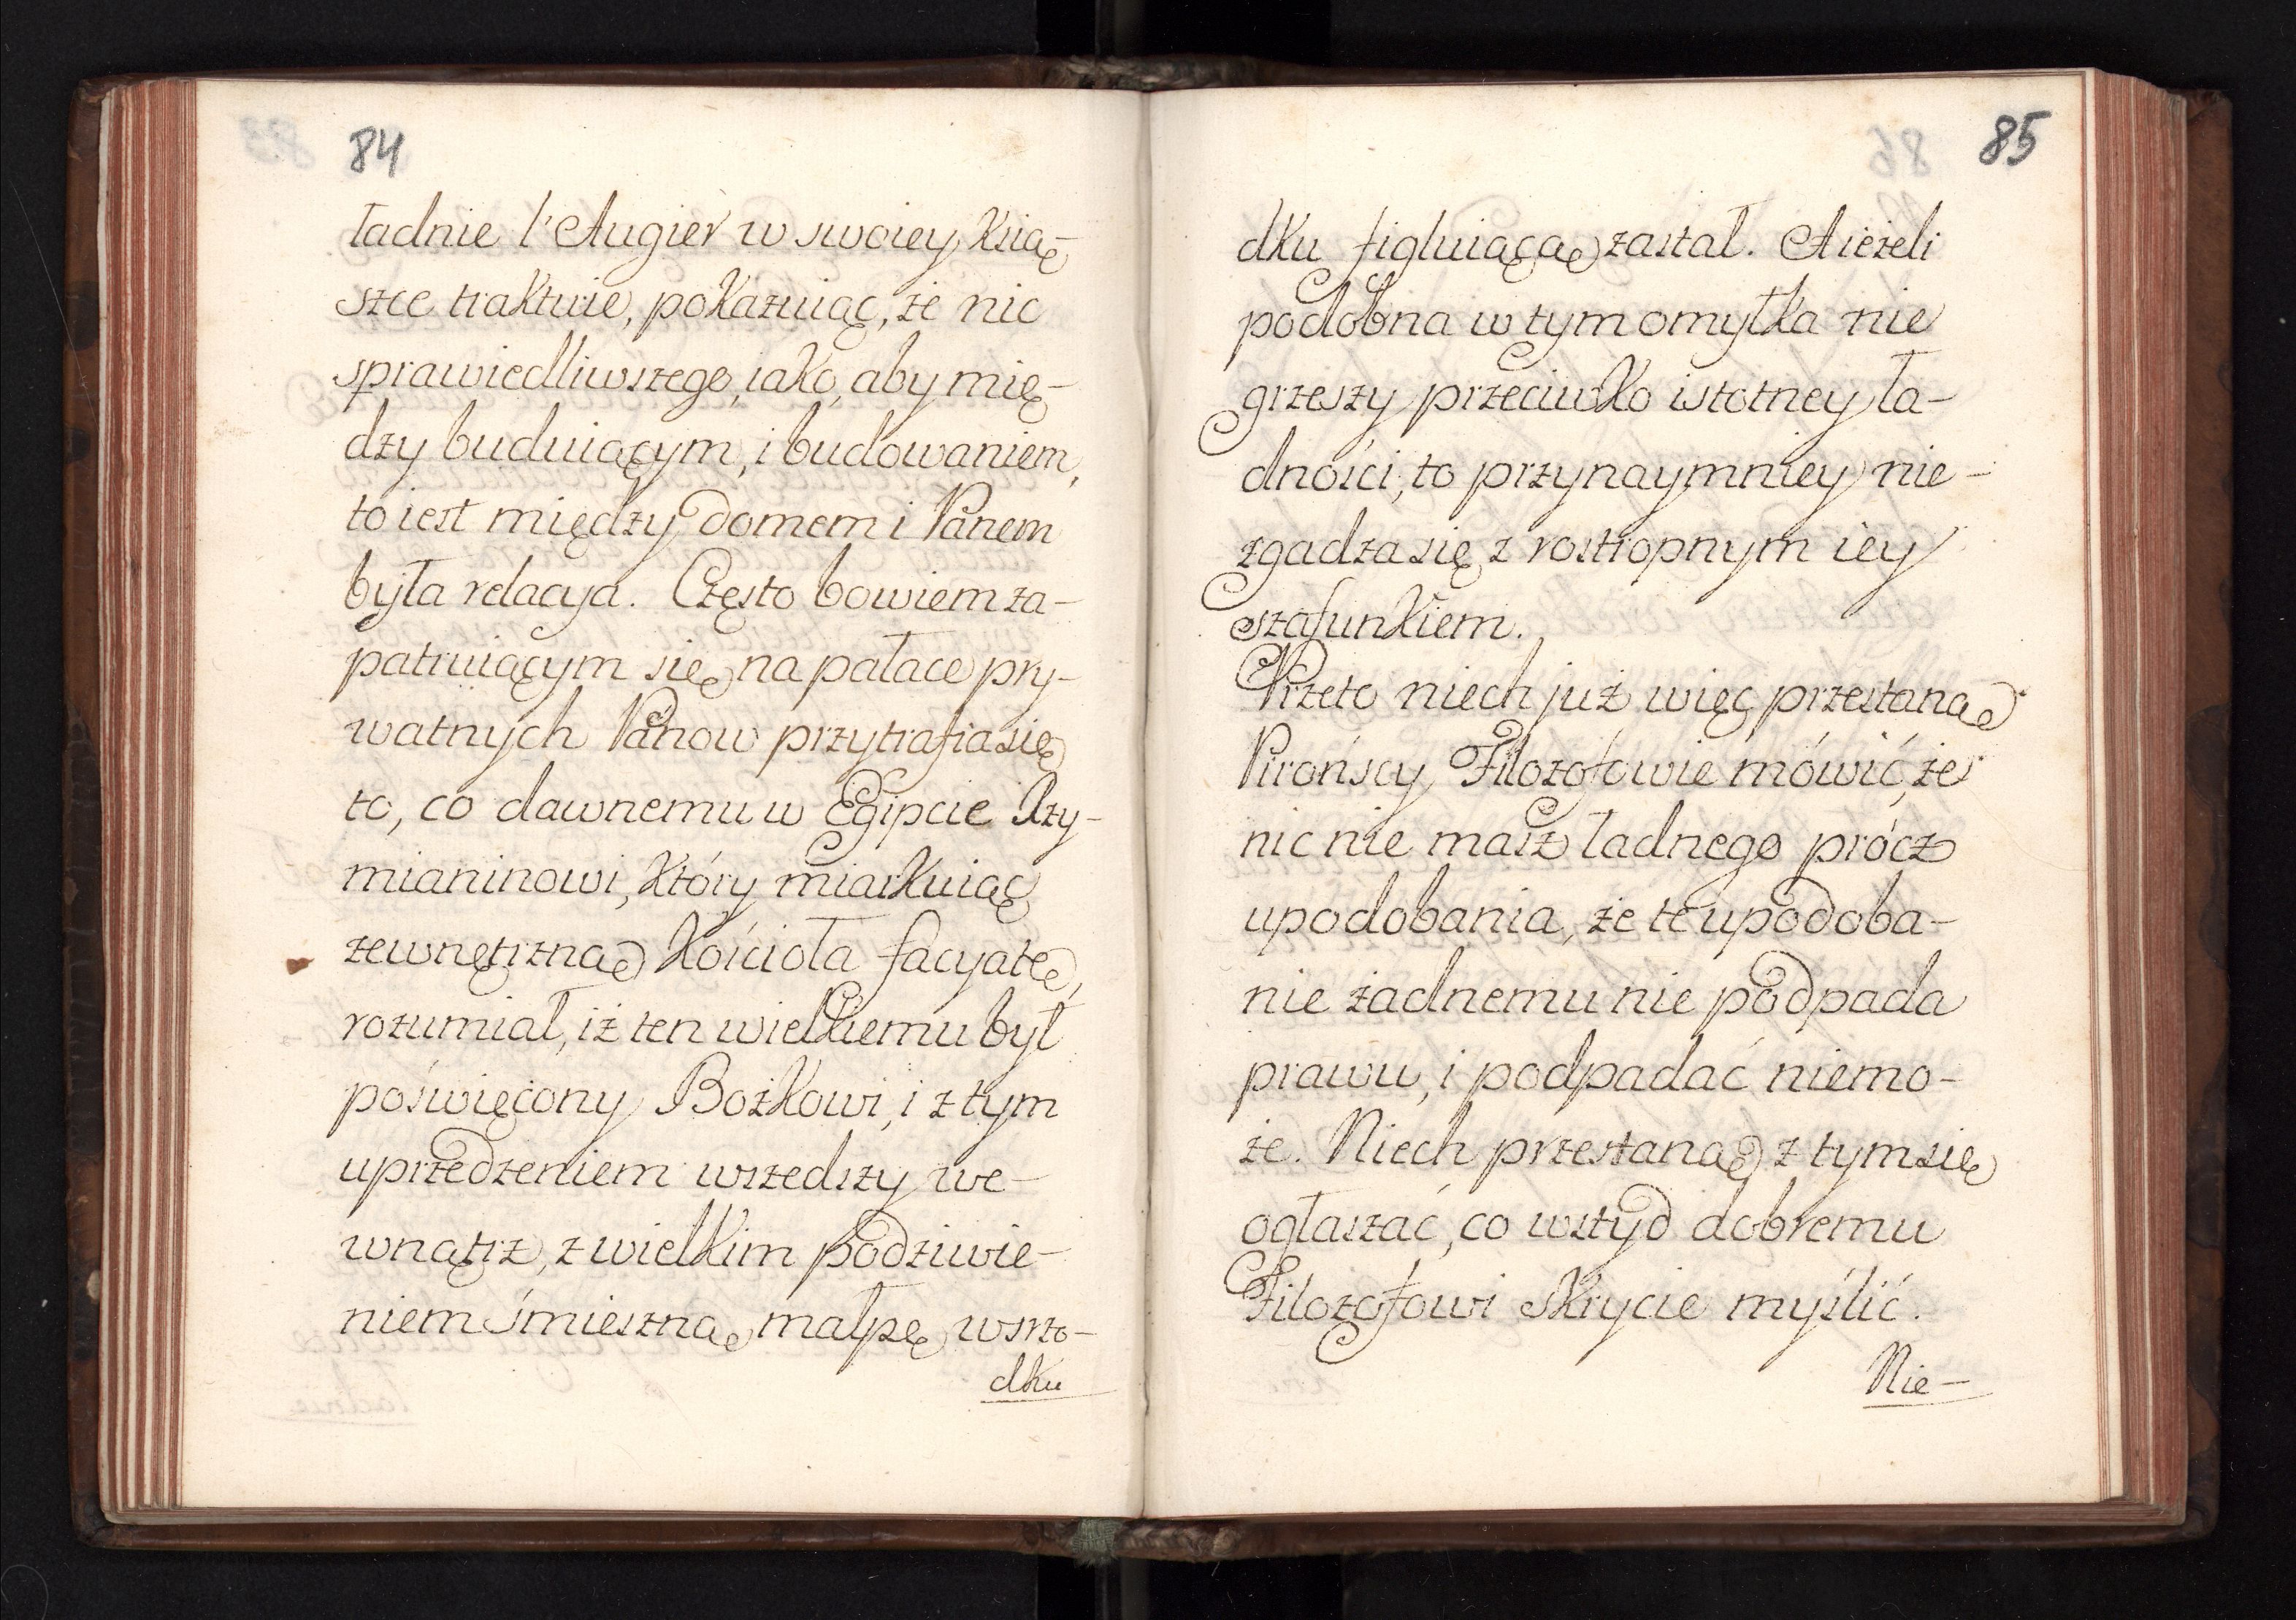 84
ładnie l'Augier w swoiey Ksią-
szce traktuie, pokazuiąc, że nic
sprawiedliwszego, iako, aby mię-
dzy buduiącym, i budowaniem,
to iest między domem i Panem
była relacya. Często bowiem za-
patruiącym się na pałace pry-
watnych Panow przytrafia się
to, co dawnemu w Egipcie Rzy-
mianinowi, który miarkuiąc
zewnętrzną Kościoła facyatę,
rozumiał, iż ten wielkiemu był
poświęcony Bożkowi, i z tym
uprzedzeniem wszedszy we-
wnątrz, z wielkim podziwie-
niem śmieszną małpę wsrzo-
dku
85
dku figluiącą zastał. A ieżeli
podobna w tym omyłka nie
grzeszy przeciwko istotney ła-
dności, to przynaymniey nie-
zgadza się z rostropnym iey
szafunkiem.
Przeto niech już więc przestaną
Pirońscy Filozofowie mówić, że
nic nie masz ładnego prócz
upodobania, że te upodoba-
nie żadnemu nie podpada
prawu, i podpadać niemo-
że. Niech przestaną z tym się
ogłaszać, co wstyd dobremu
Filozofowi skrycie myślić.
Nie-